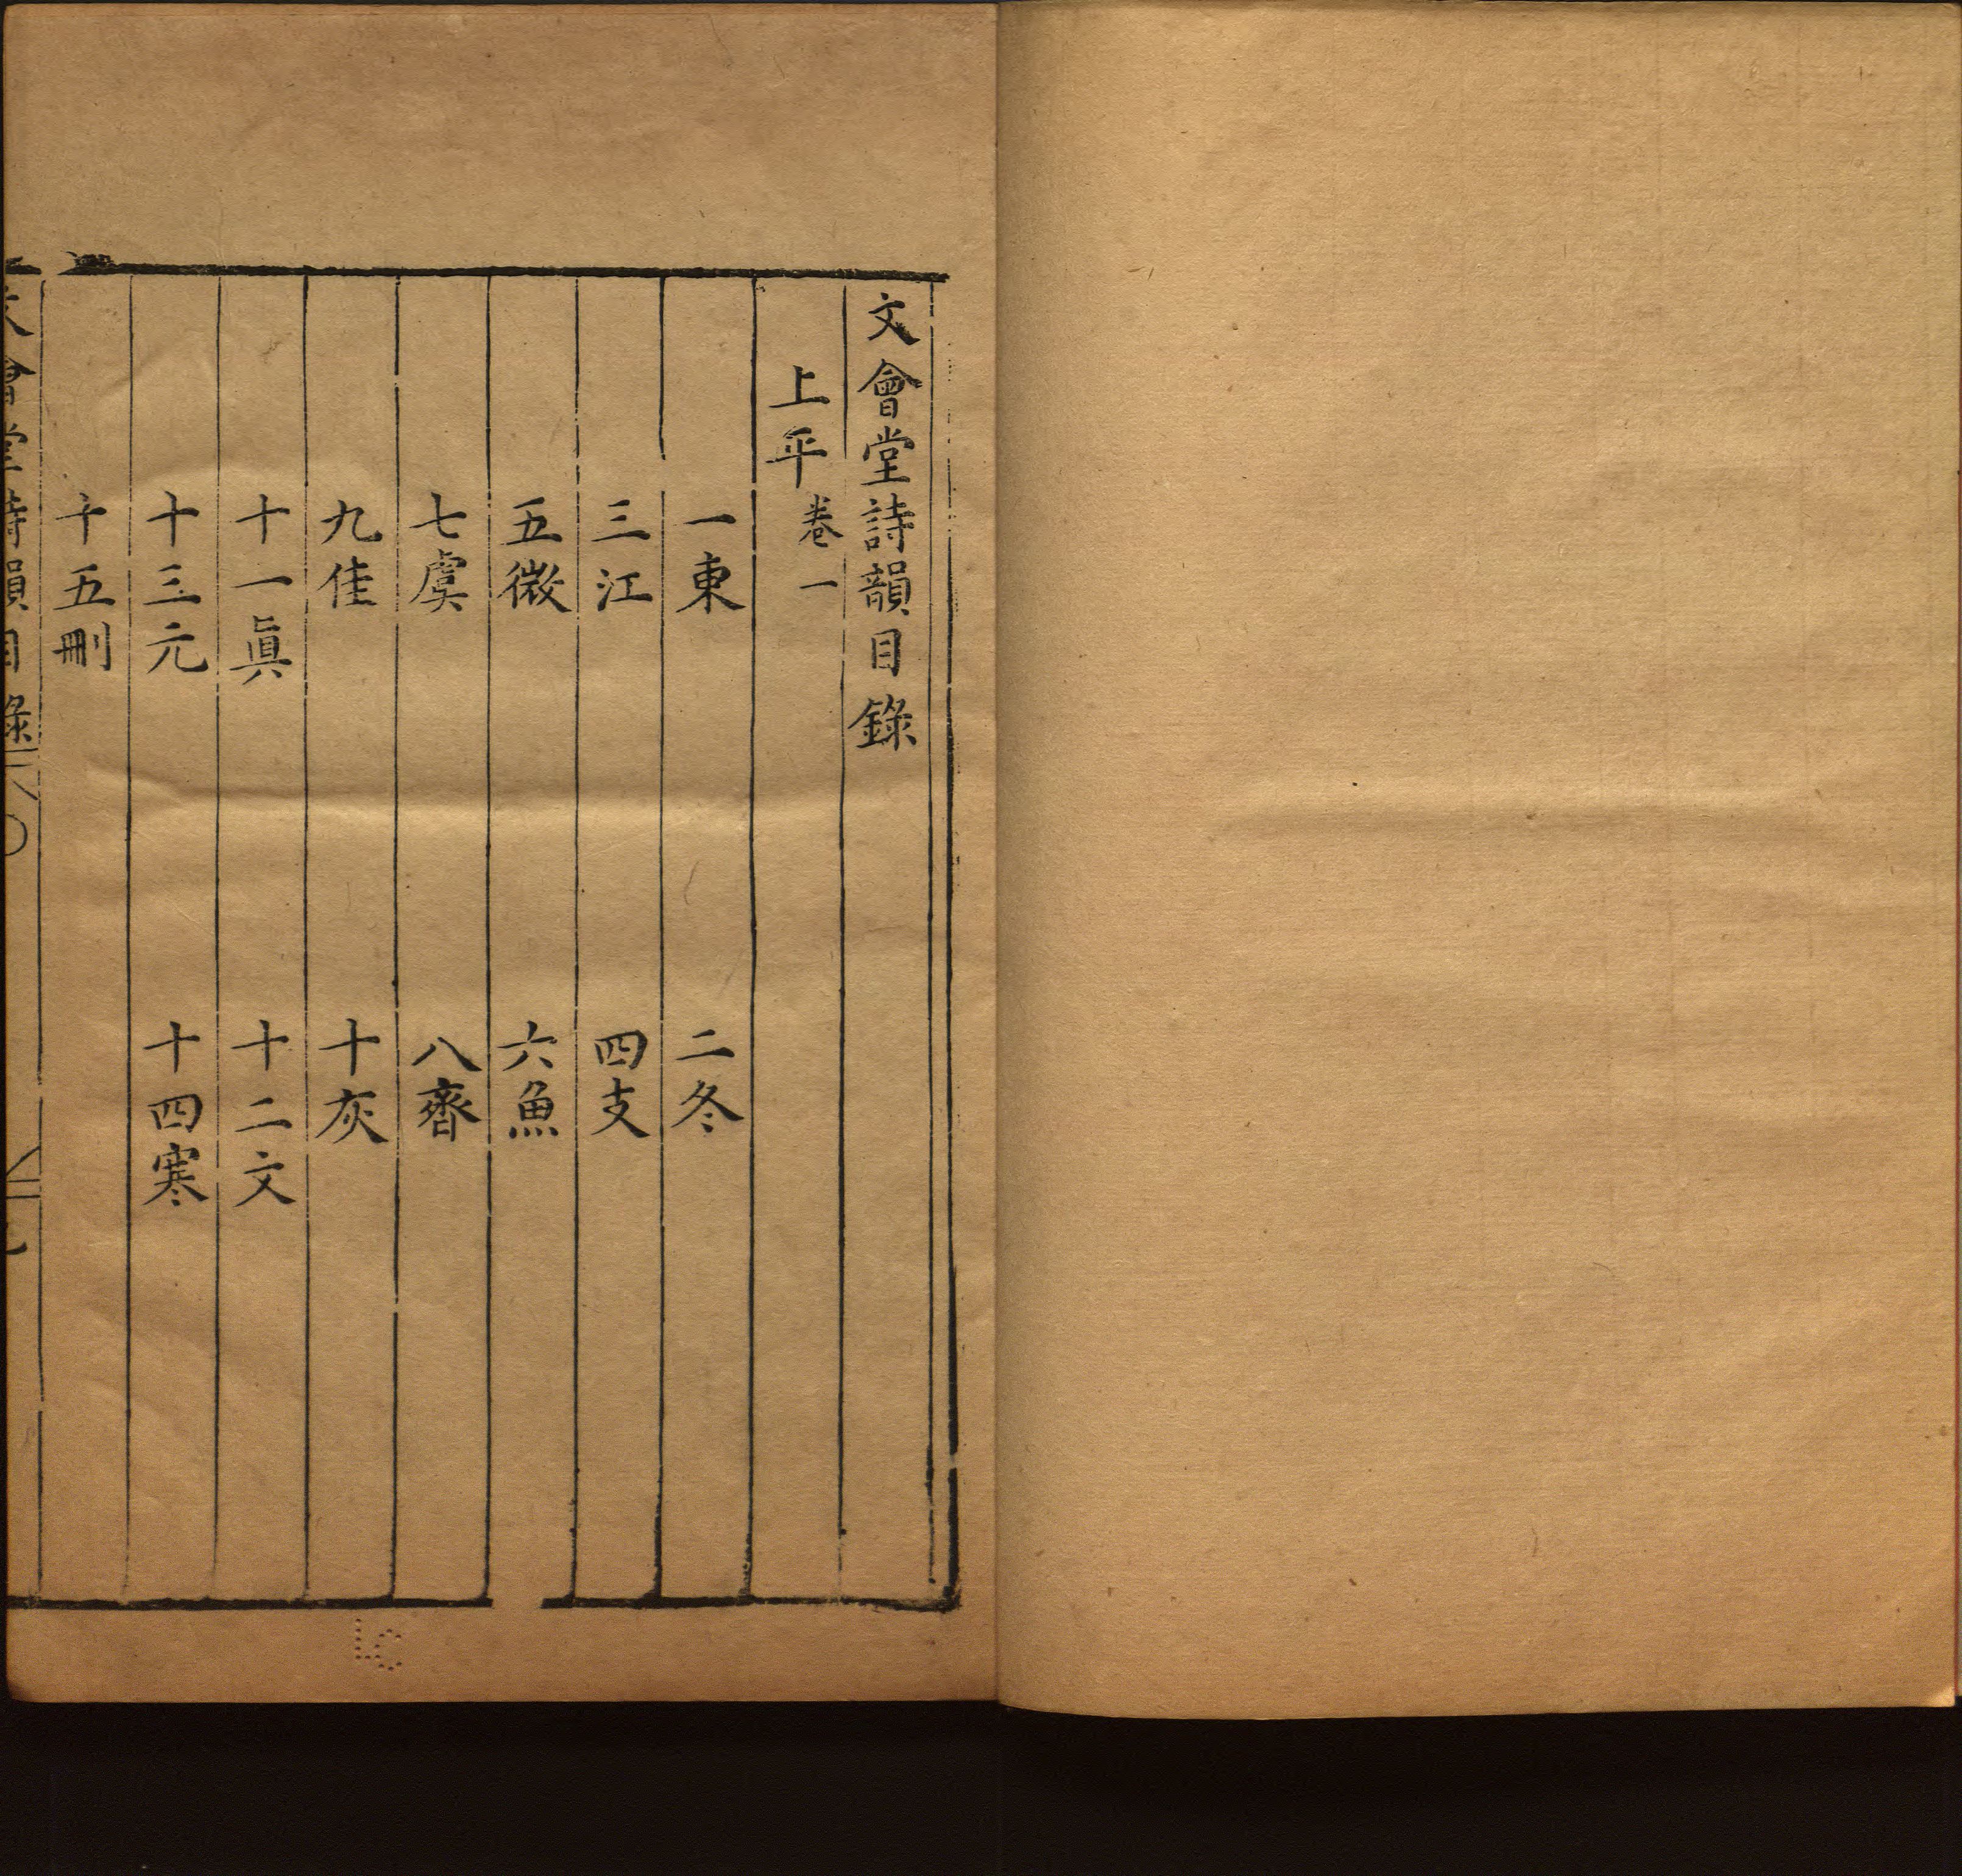 文會堂詩韻目錄
上平卷一
一東 二冬
三江 四支
五微 六魚
七虞 八齊
九佳 十灰
十一眞 十二文
十三元 十四寒
十五刪
文會堂詩韻目錄
LC